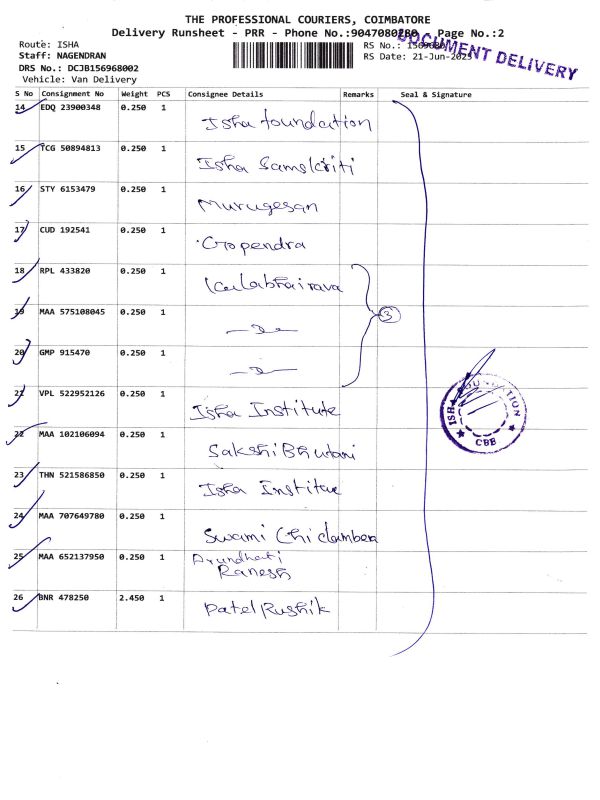 THE PROFESSIONAL COURIERS, COIMBATORE
Delivery Runsheet - PRR - Phone No.:9047080280 Page No.:2
DOCUMENT DELIVERY
Route: ISHA
Staff: NAGENDRAN
DRS No.: DCJB156968002
Vehicle: Van Delivery
RS No.:
RS Date: 21-Jun-2023
S No Consignment No Weight PCS Consignee Details Remarks Seal & Signature
14 EDQ 23900348 0.250 1 Isha foundation
15 TCG 50894813 0.250 1 Isha Samskriti
16 STY 6153479 0.250 1 Murugesan
17 CUD 192541 0.250 1 Gopendra
18 RPL 433820 0.250 1 Kalabhairava
19 MAA 575108045 0.250 1 3
20 GMP 915470 0.250 1
21 VPL 522952126 0.250 1 Isha Institute
ISHA FOUNDATION
CBB
22 MAA 102106094 0.250 1 Sakshi Bhutani
23 THN 521586850 0.250 1 Isha Institue
24 MAA 707649780 0.250 1 Swami Chidambera
25 MAA 652137950 0.250 1 Arundhati
Ranesh
26 BNR 478250 2.450 1 Patel Rushik